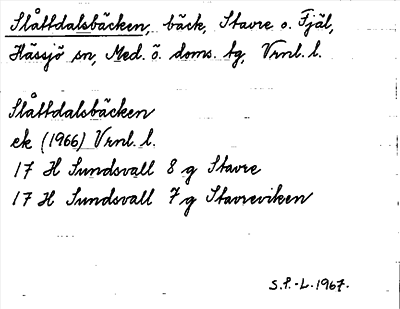 Slåttdalsbäcken, bäck, Stavre o. Fjäl,
Hässjö sn, Med. ö. doms. tg, Vrnl. l.
Slåttdalsbäcken
ek (1966) Vrnl. l.
17 H Sundsvall 8 g Stavre
17 H Sundsvall 7 g Stavreviken
S.P.-L. 1967.